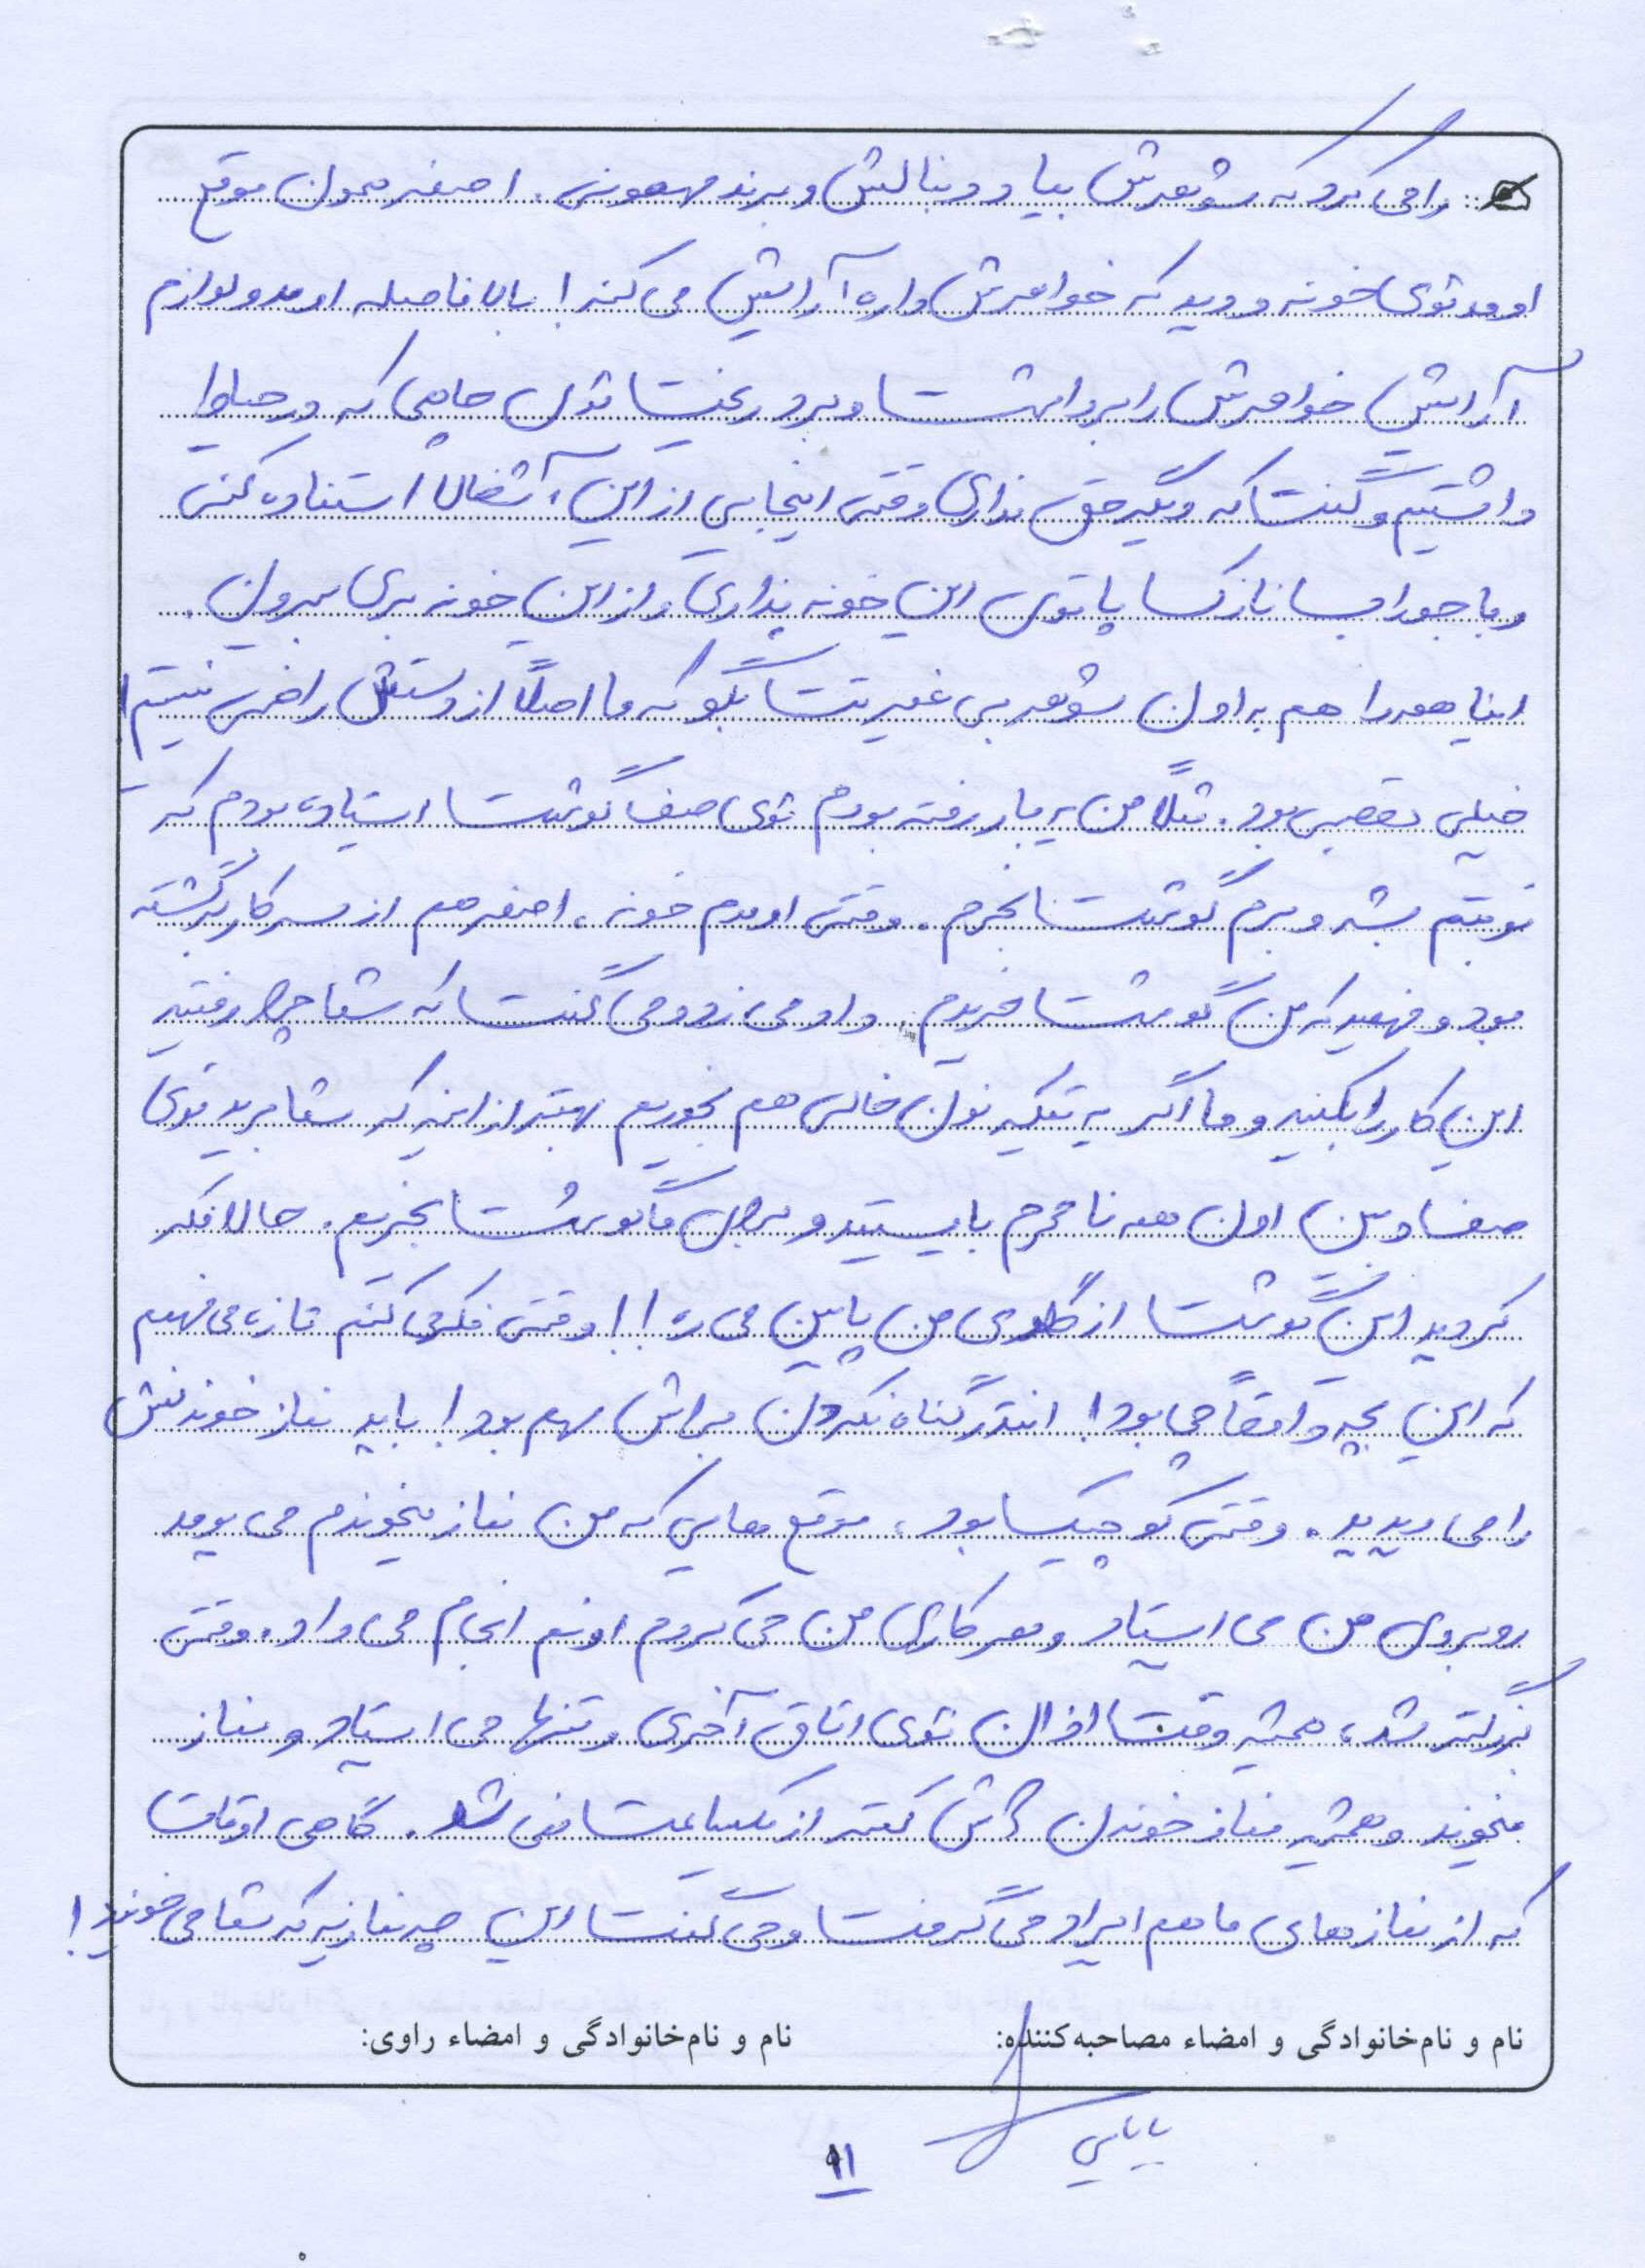 را می کرد که شوهرش بیاد دنبالش و برند مهمونی. اصغر همون موقع
اومد توی خونه و دید که خواهرش داره آرایش می کنه! بلافاصله اومد و لوازم
آرایش خواهرش را برداشت و برد ریخت توی چاهی که در حیاط
داشتیم و گفت که دیگه حق نداری وقتی اینجایی از این آشغالا استفاده کنی
و با جوراب نازک پا توی این خونه بذاری و از این خونه بری بیرون.
اینا همه را هم به اون شوهر بی غیرتت بگو که ما اصلاً از دستش راضی نیستیم!
خیلی تعصبی بود. مثلاً من یه بار رفته بودم توی صف گوشت ایستاده بودم که
نوبتم بشه و برم گوشت بخرم. وقتی اومدم خونه، اصغر هم از سر کار برگشته
بود و فهمید که من گوشت خریدم. داد می زد و می گفت که شما چرا رفتید
این کار را بکنید و ما اگر یه تیکه نون خالی هم بخوریم بهتر از اینه که شما برید توی
صف و بین اون همه نامحرم بایستید و برای ما گوشت بخرید. حالا فکر
کردید این گوشت از گلوی من پایین می ره!! وقتی فکر می کنم تازه می فهمم
که این بچه واقعاً چی بود! انقدر گناه نکردن براش مهم بود! باید نماز خوندنش
را می دیدید. وقتی کوچیک بود، موقع هایی که من نماز میخوندم می یومد
روبروی من می ایستاد و هر کاری من می کردم اونم انجام می داد. وقتی
بزرگتر شد، همیشه وقت اذان توی اتاق آخری و تنها می ایستاد و نماز
میخوند و همیشه نماز خوندن اش کمتر از یکساعت نمی شد. گاهی اوقات
که از نمازهای ما هم ایراد می گرفت و می گفت این چه نمازیه که شما می خونید!
نام و نام‌خانوادگی و امضاء مصاحبه‌کننده: نام و نام‌خانوادگی و امضاء راوی:
بابایی
۱۱